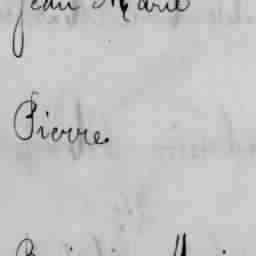 Jean Marie
Pierre.